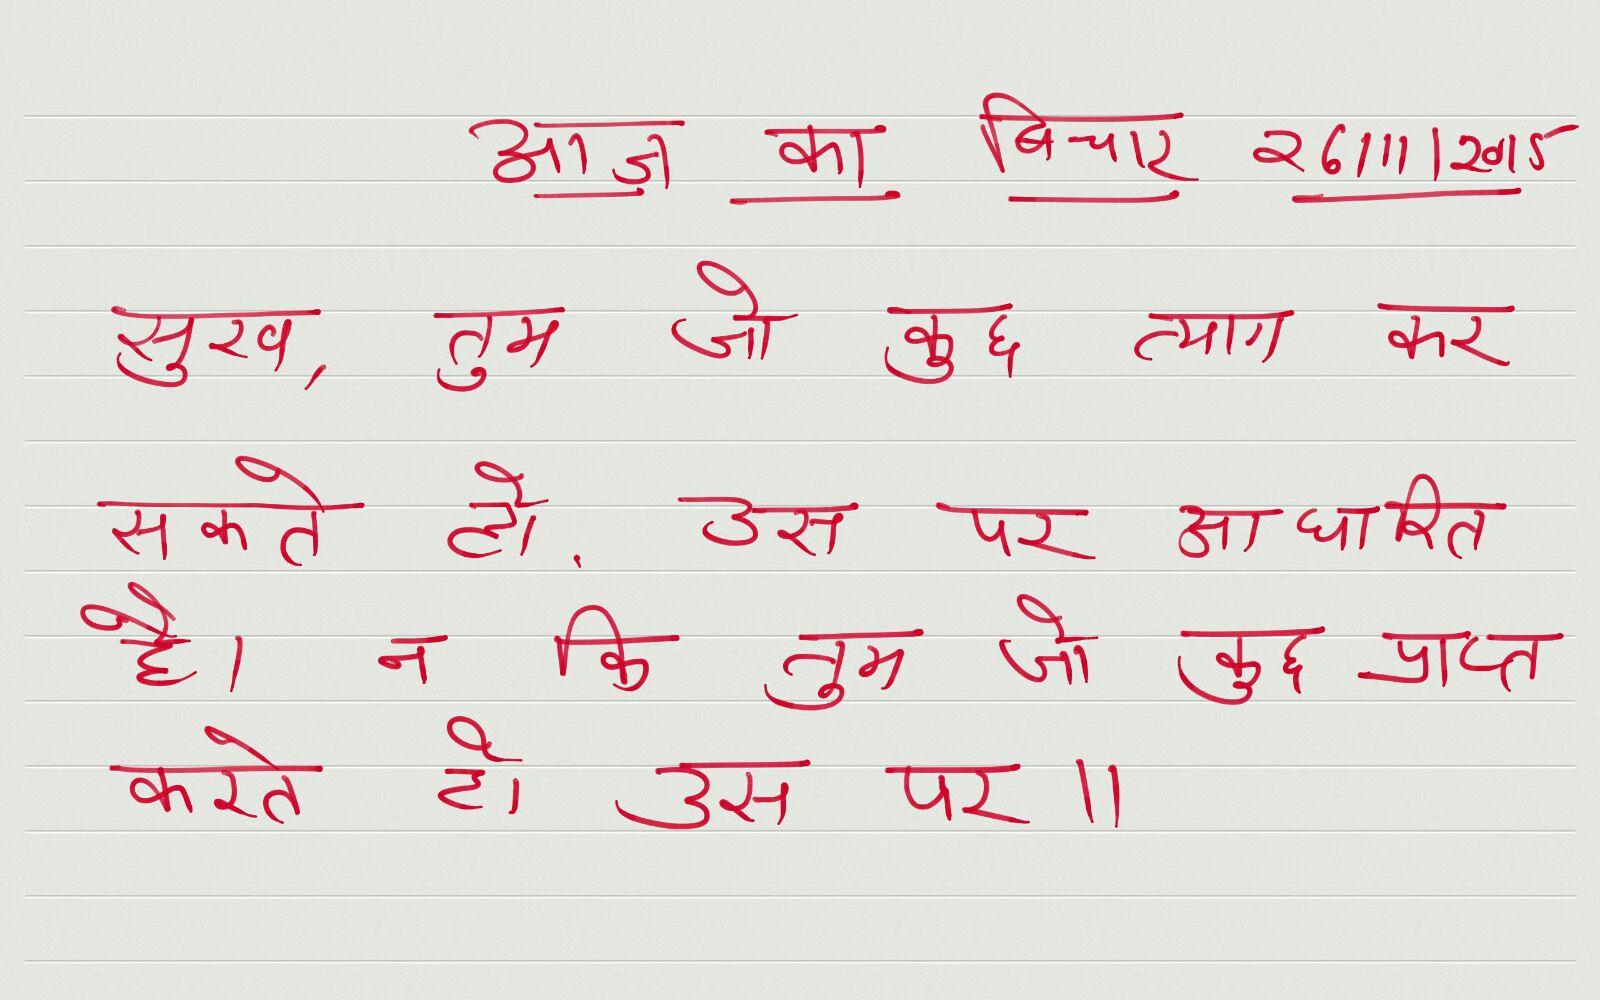 आज का बिचार २6/11/2015
सुख, तुम जो कुछ त्याग कर
सकते हो. उस पर आधारित
है। न कि तुम जो कुछ प्राप्त
करते हो उस पर॥